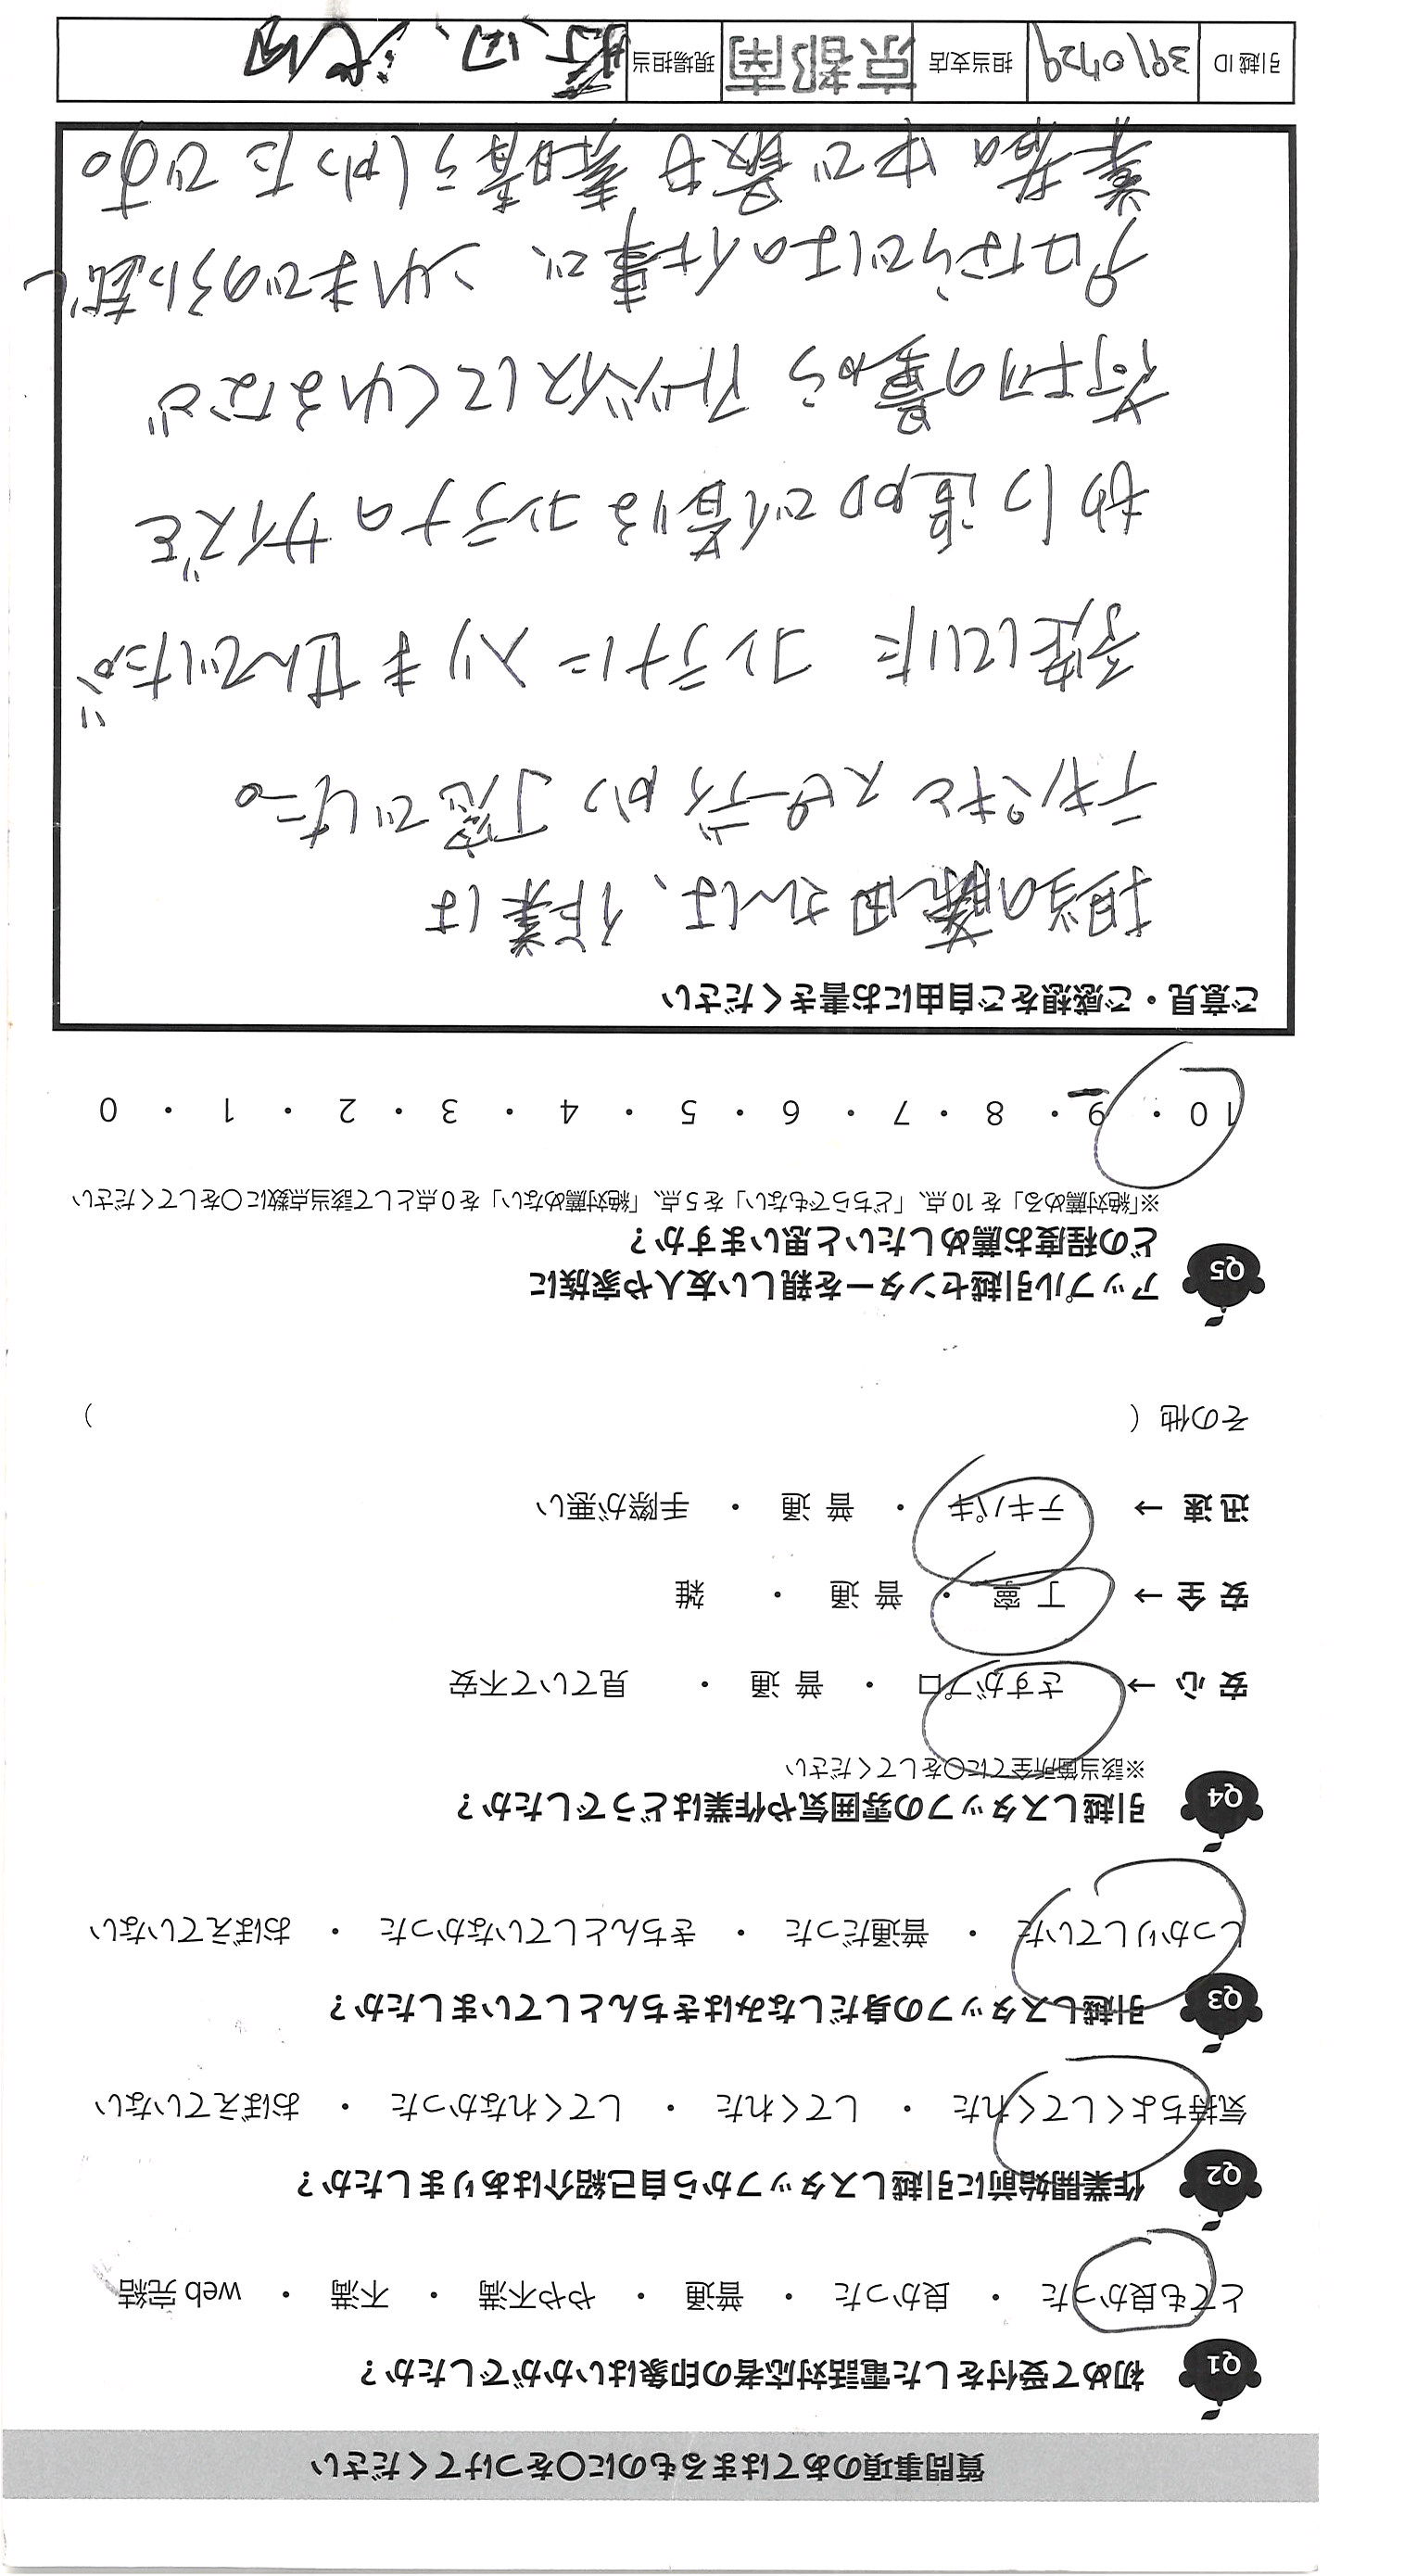 質問事項のあてはまるものに○をつけてください
Q1 初めて受付をした電話対応者の印象はいかがでしたか？
とても良かった ・ 良かった ・ 普通 ・ やや不満 ・ 不満 ・ web 完結
Q2 作業開始前に引越しスタッフから自己紹介はありましたか？
気持ちよくしてくれた ・ してくれた ・ してくれなかった ・ おぼえていない
Q3 引越しスタッフの身だしなみはきちんとしていましたか？
しっかりしていた ・ 普通だった ・ きちんとしていなかった ・ おぼえていない
Q4 引越しスタッフの雰囲気や作業はどうでしたか？
※該当箇所全てに○をしてください
安心 → さすがプロ ・ 普通 ・ 見ていて不安
安全 → 丁寧 ・ 普通 ・ 雑
迅速 → テキパキ ・ 普通 ・ 手際が悪い
その他（ ）
Q5 アップル引越センターを親しい友人や家族に
どの程度お薦めしたいと思いますか？
※「絶対薦める」を 10 点、「どちらでもない」を 5 点、「絶対薦めない」を 0 点として該当点数に○をしてください
10 ・ 9 ・ 8 ・ 7 ・ 6 ・ 5 ・ 4 ・ 3 ・ 2 ・ 1 ・ 0
ご意見・ご感想をご自由にお書きください
担当の藤田さんは、作業は
テキパキとスピーディかつ丁寧でした。
予定していた コンテナに入りませんでしたが
すぐに追加で借りるコンテナのサイズを
荷物の量から アドバイスしてくれるなど
プロならではの仕事で、これまでの引越し
業者の中で最も素晴らしかったです。
引越 ID 3910729 担当支店 京都南 現場担当